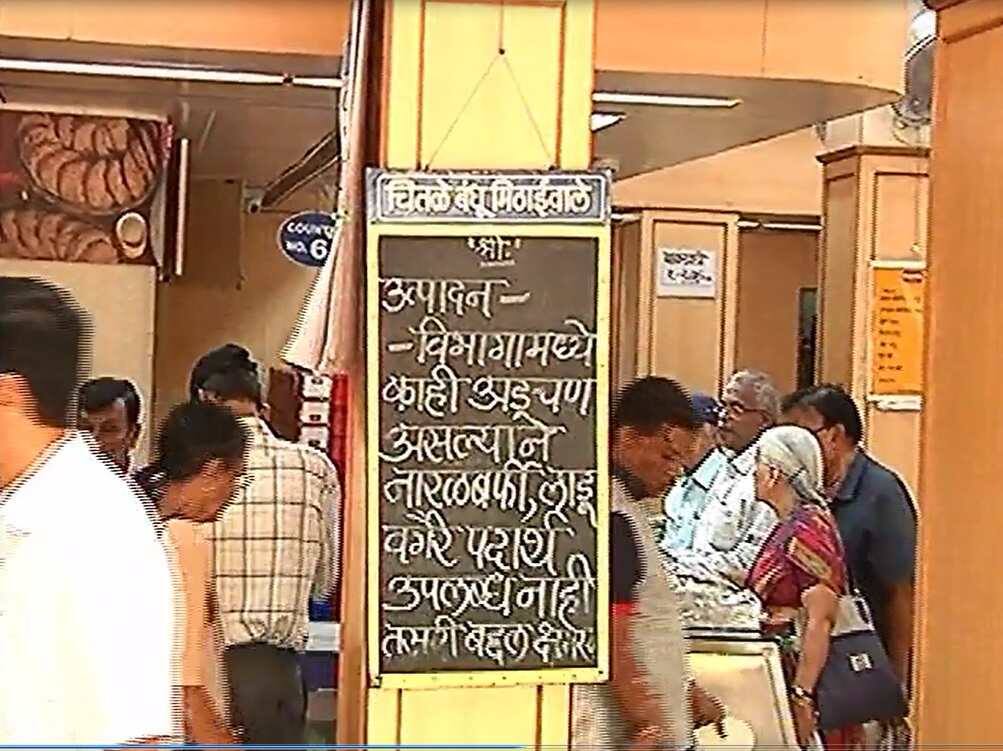 चितळे बंधू मिठाईवाले
"श्री:"
उत्पादन -
- विभागामध्ये
काही अडचण
असल्याने
नारळबर्फी, लाडू
वगैरे पदार्थ
उपलब्ध नाही
तसरी बद्दल क्षमस्व
COUN
NO. 6